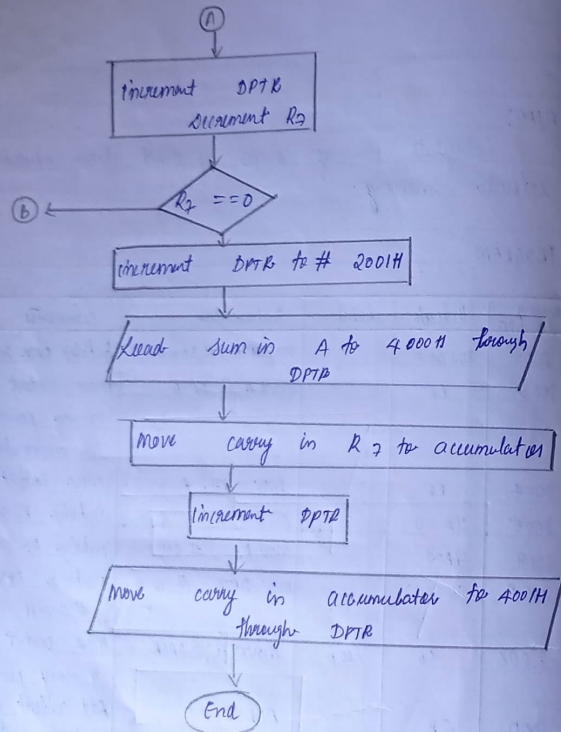 A
Increment DPTR
Decrement R7
R7 ==0
B
Increment DPTR to # 2001H
Load sum in A to 4000H through
DPTR
Move carry in R7 to accumulator
Increment DPTR
Move carry in accumulator to 4001H
through DPTR
End